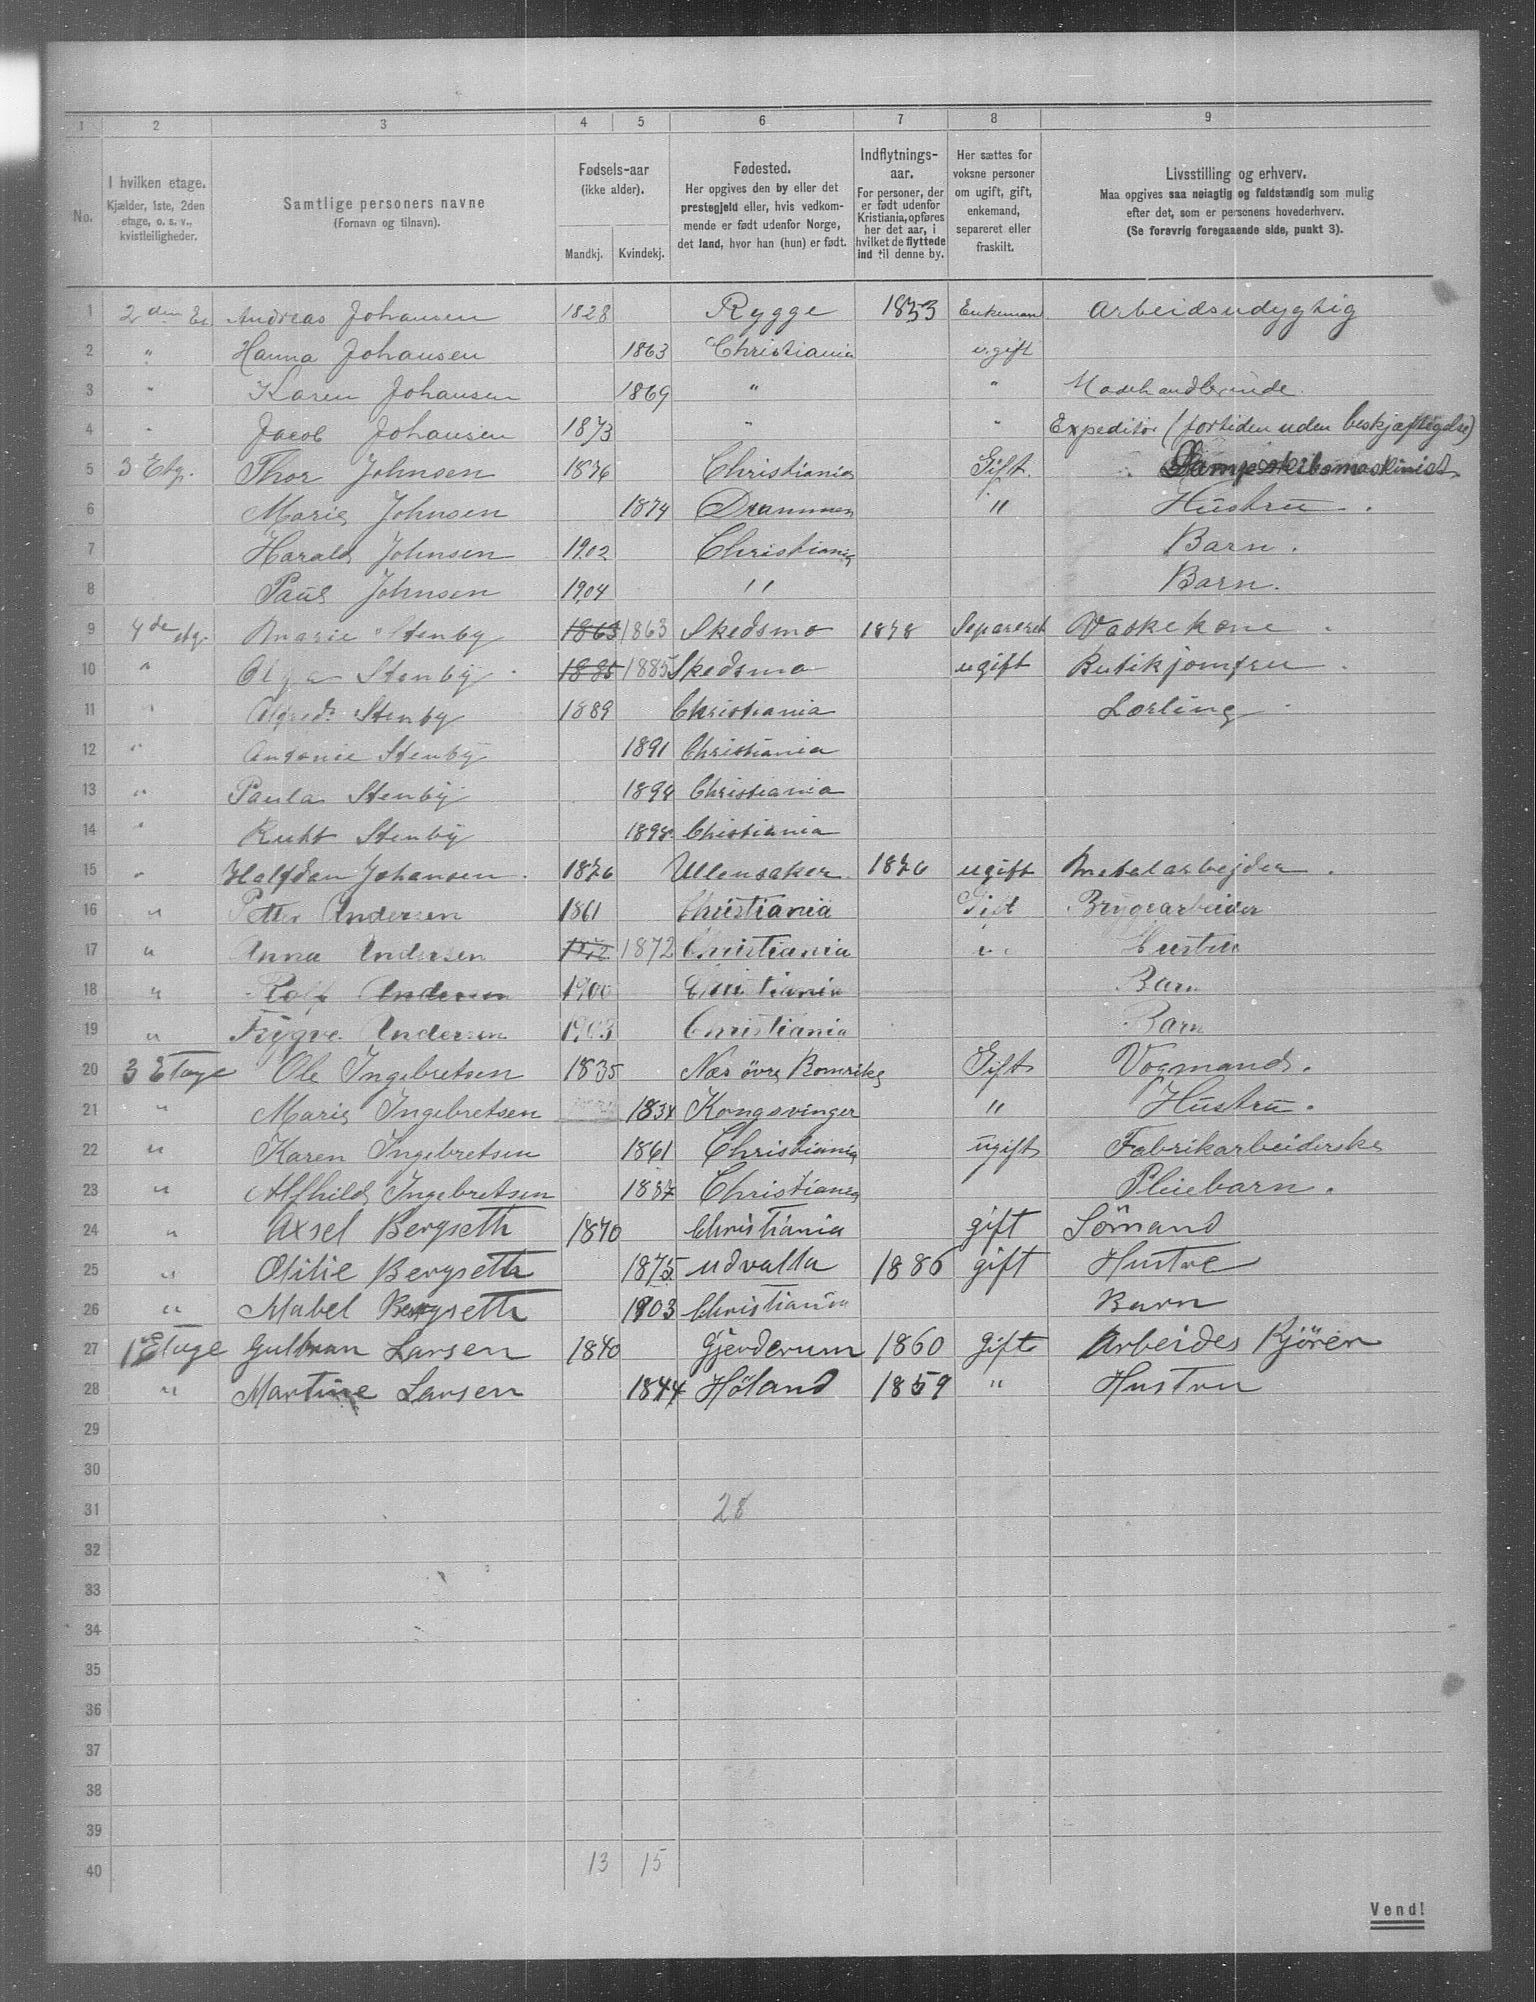 1 2 3 4 5 6 7 8 9
No.
I hvilken etage.
Kjælder, 1ste, 2den
etage, o. s. v.,
kvistleiligheder.
Samtlige personers navne
(Fornavn og tilnavn).
Fødsels-aar
(ikke alder).
Mandkj. Kvindekj.
Fødested.
Her opgives den by eller det
prestegjeld eller, hvis vedkom-
mende er født udenfor Norge,
det land, hvor han (hun) er født.
Indflytnings-
aar.
For personer, der
er født udenfor
Kristiania, opføres
her det aar, i
hvilket de flyttede
ind til denne by.
Her sættes for
voksne personer
om ugift, gift,
enkemand,
separeret eller
fraskilt.
Livsstilling og erhverv.
Maa opgives saa nøiagtig og fuldstændig som mulig
efter det, som er personens hovederhverv.
(Se forøvrig foregaaende side, punkt 3).
1 2den Et Andreas Johansen 1828 Rygge 1833 Enkeman Arbeidsudygtig
2 " Hanna Johansen 1863 Christiania ugift
3 " Karen Johansen 1869 " " Modehandlerinde
4 " Jacob Johansen 1873 " " Expeditør (fortiden uden beskjæftigelse)
5 3 Etg. Thor Johnsen 1876 Christiania Gift Dampskibsmaskinist
6 Marie Johnsen 1874 Drammen " Hustru
7 Harald Johnsen 1902 Christiania Barn.
8 Paul Johnsen 1904 " Barn.
9 4de etg. Marie Stenby 1863 1863 Skedsmo 1878 Separeret Vaskekone
10 " Olga Stenby 1885 1885 Skedsmo ugift Butikjomfru
11 " Alfred Stenby 1889 Christiania Lærling
12 " Antonie Stenby 1891 Christiania
13 " Paula Stenby 1894 Christiania
14 " Ruht Stenby 1898 Chistiania
15 " Halfdan Johansen 1876 Ullensaker 1876 ugift Metalarbejder
16 " Petter Andersen 1861 Christiania Gift Bryggearbeider
17 " Anna Andersen 1872 1872 Christiania " Hustru
18 " Rolf Andersen 1900 Christiania Barn
19 " Trygve Andersen 1903 Christiania Barn
20 3 Etage Ole Ingebretsen 1835 Næs övre Romrike Gift Vogmand.
21 " Marie Ingebretsen 1834 Kongsvinger " Hustru.
22 " Karen Ingebretsen 1861 Christiania ugift Fabrikarbeiderske
23 " Alfhild Ingebretsen 1887 Christiania Pleiebarn.
24 " Axsel Bergseth 1870 Christiania gift Sömand
25 " Otilie Bergseth 1875 udvalla 1886 gift Hustre
26 " Mabel Bergseth 1903 Christiania Barn
27 1 Etage Gulbran Larsen 1840 Gjerderum 1860 gift Arbeides Kjörer
28 " Martine Larsen 1844 Höland 1859 " Hustru
29
30
31 28
32
33
34
35
36
37
38
39
40 13 15
Vend!